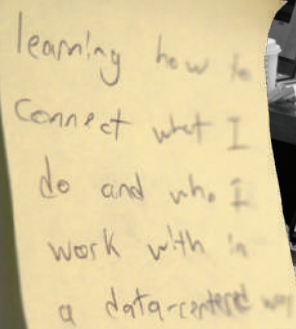 learning how to
connect what I
do and who I
work with in
a data-centered way